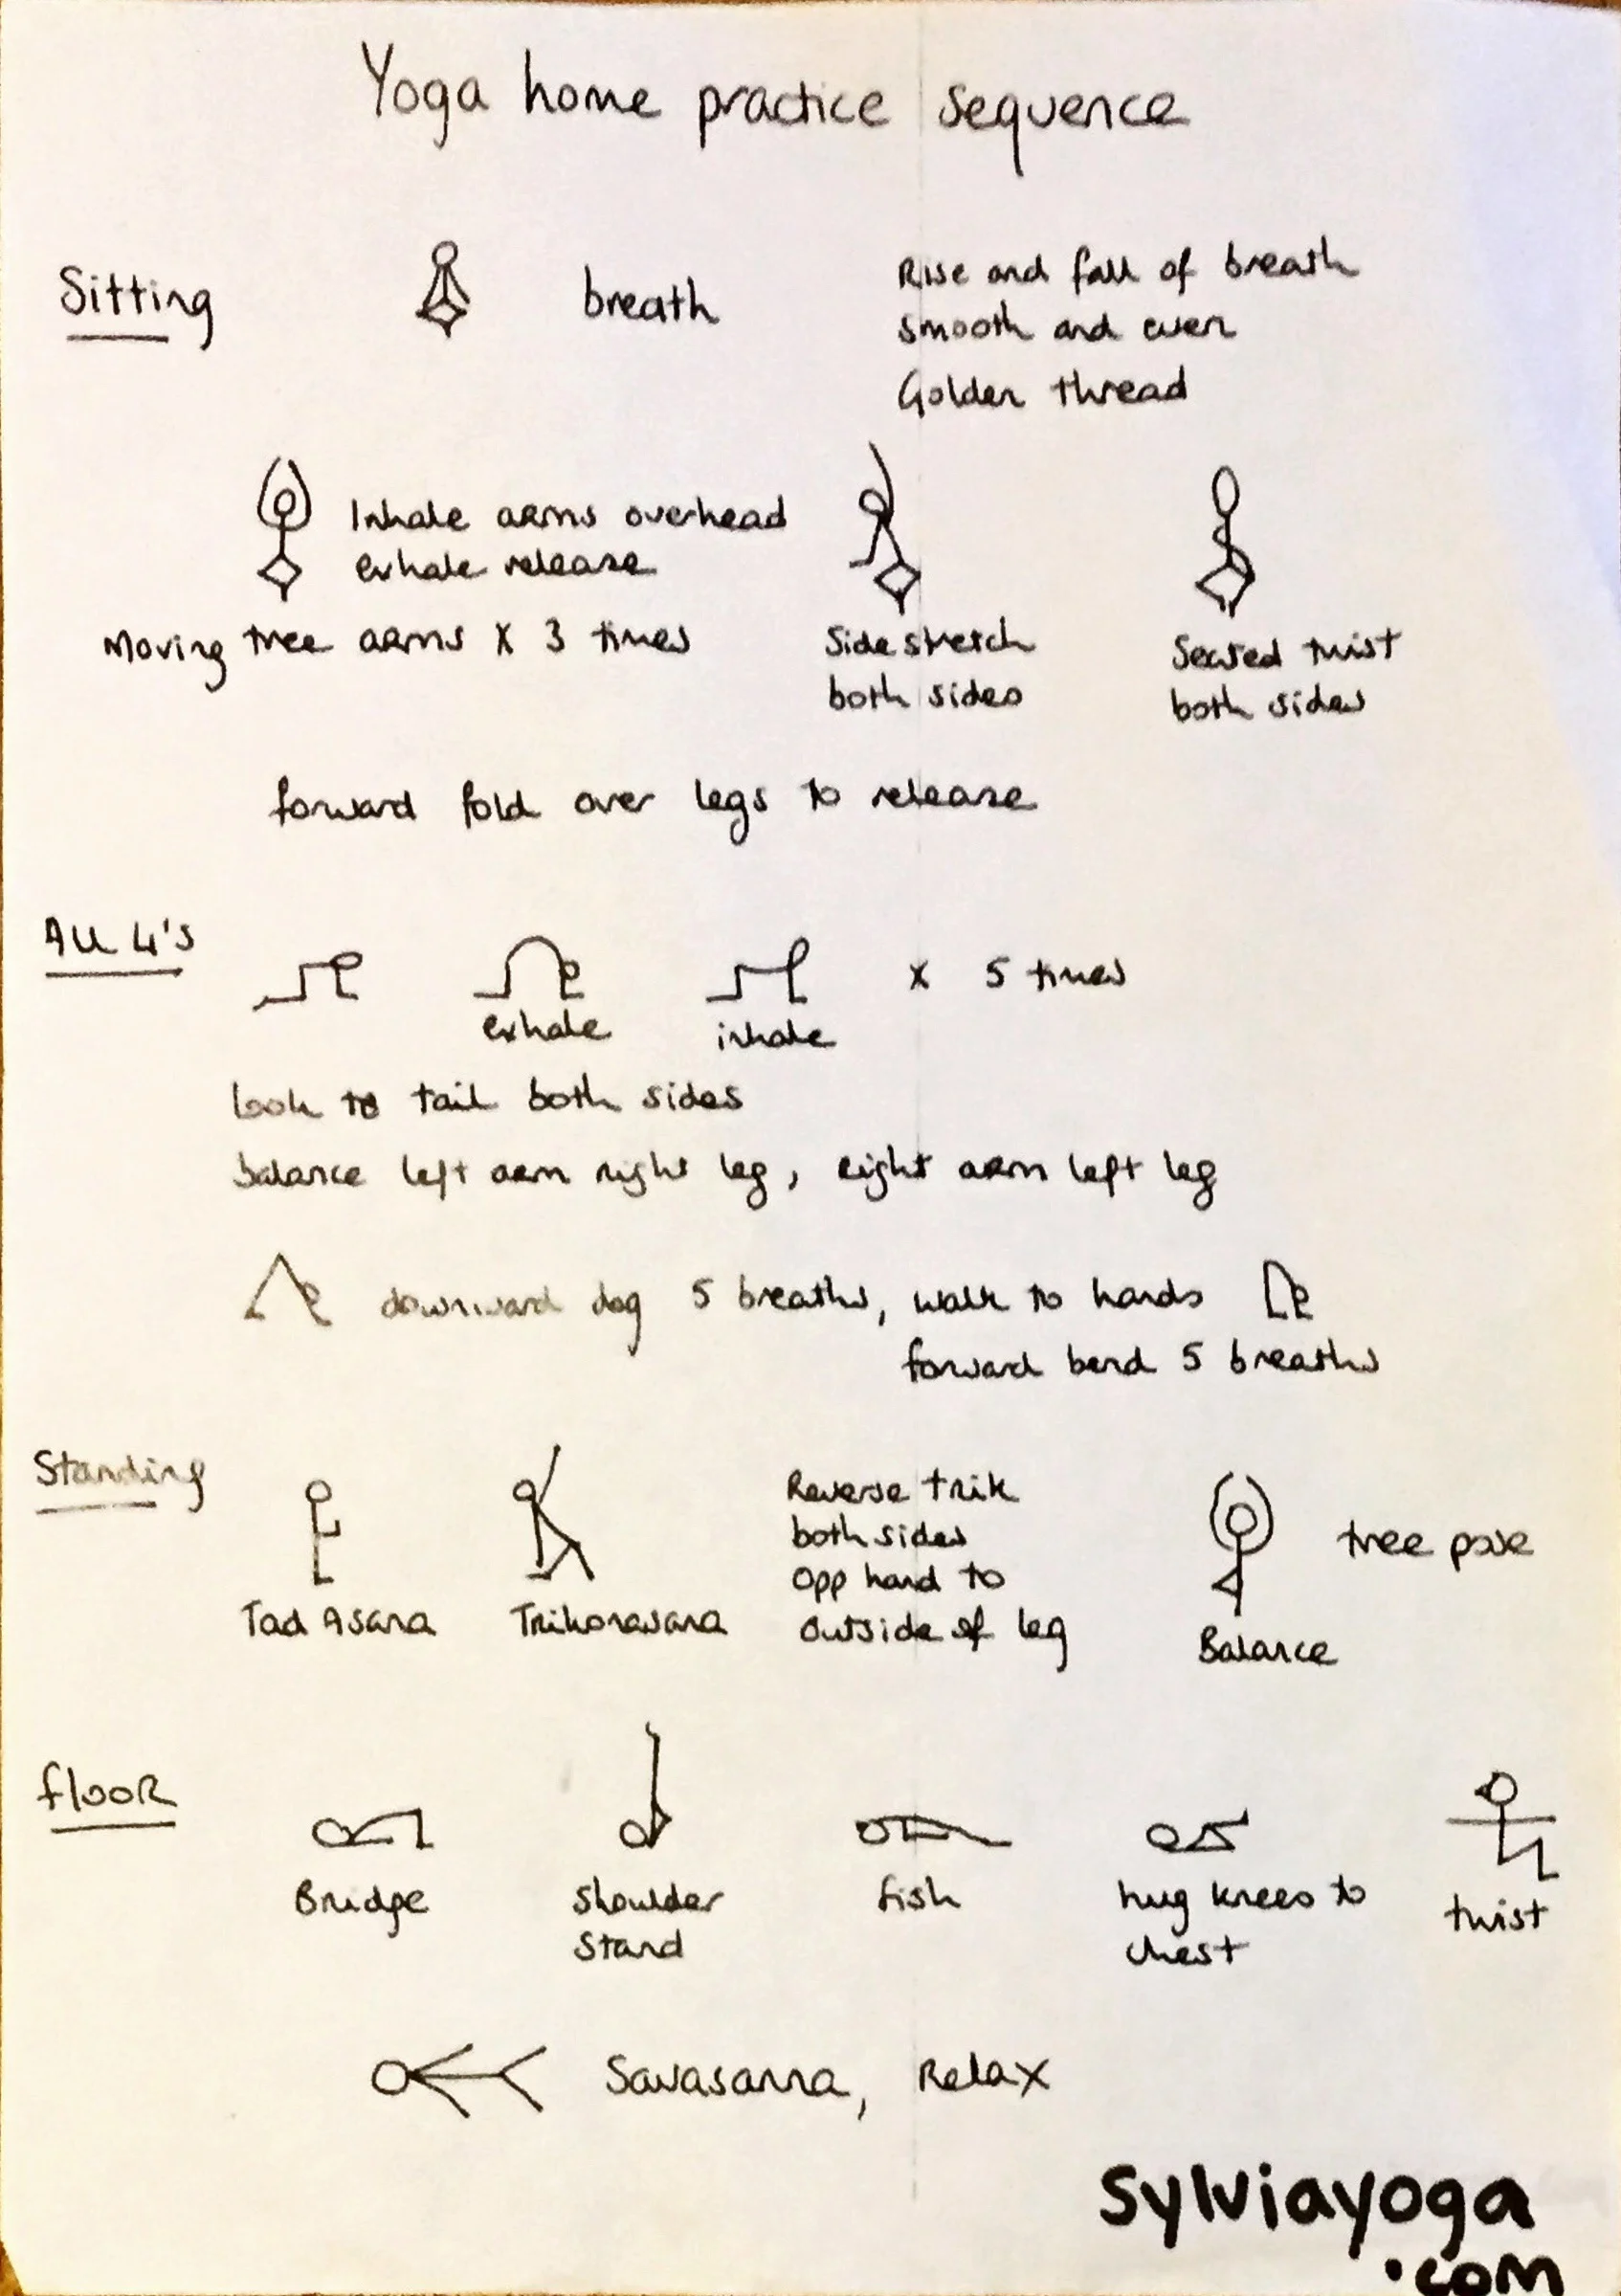 Yoga home practice sequence
Sitting
breath
Rise and fall of breath
smooth and even
Golden thread
Inhale arms overhead
exhale release
Moving tree arms x 3 times
Side stretch
both sides
Seated twist
both sides
forward fold over legs to release
All 4's
exhale
inhale
x 5 times
look to tail both sides
balance left arm right leg, right arm left leg
downward dog 5 breaths, walk to hands
forward bend 5 breaths
Standing
Tad Asana
Trikonasana
Reverse trik
both sides
opp hand to
outside of leg
tree pose
Balance
floor
Bridge
Shoulder
Stand
fish
hug knees to
chest
twist
Savasanna, Relax
sylviayoga
.com